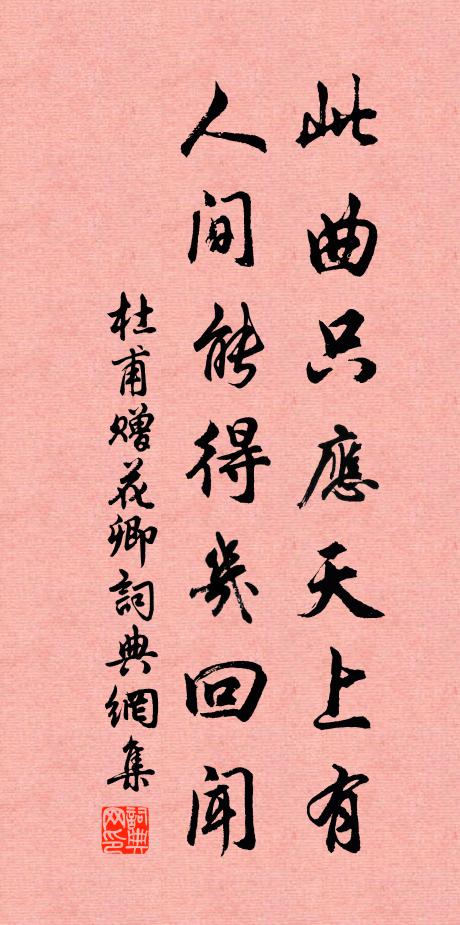 此曲只應天上有
人间能得幾回闻
杜甫赠花卿詞典網集
詞典网印